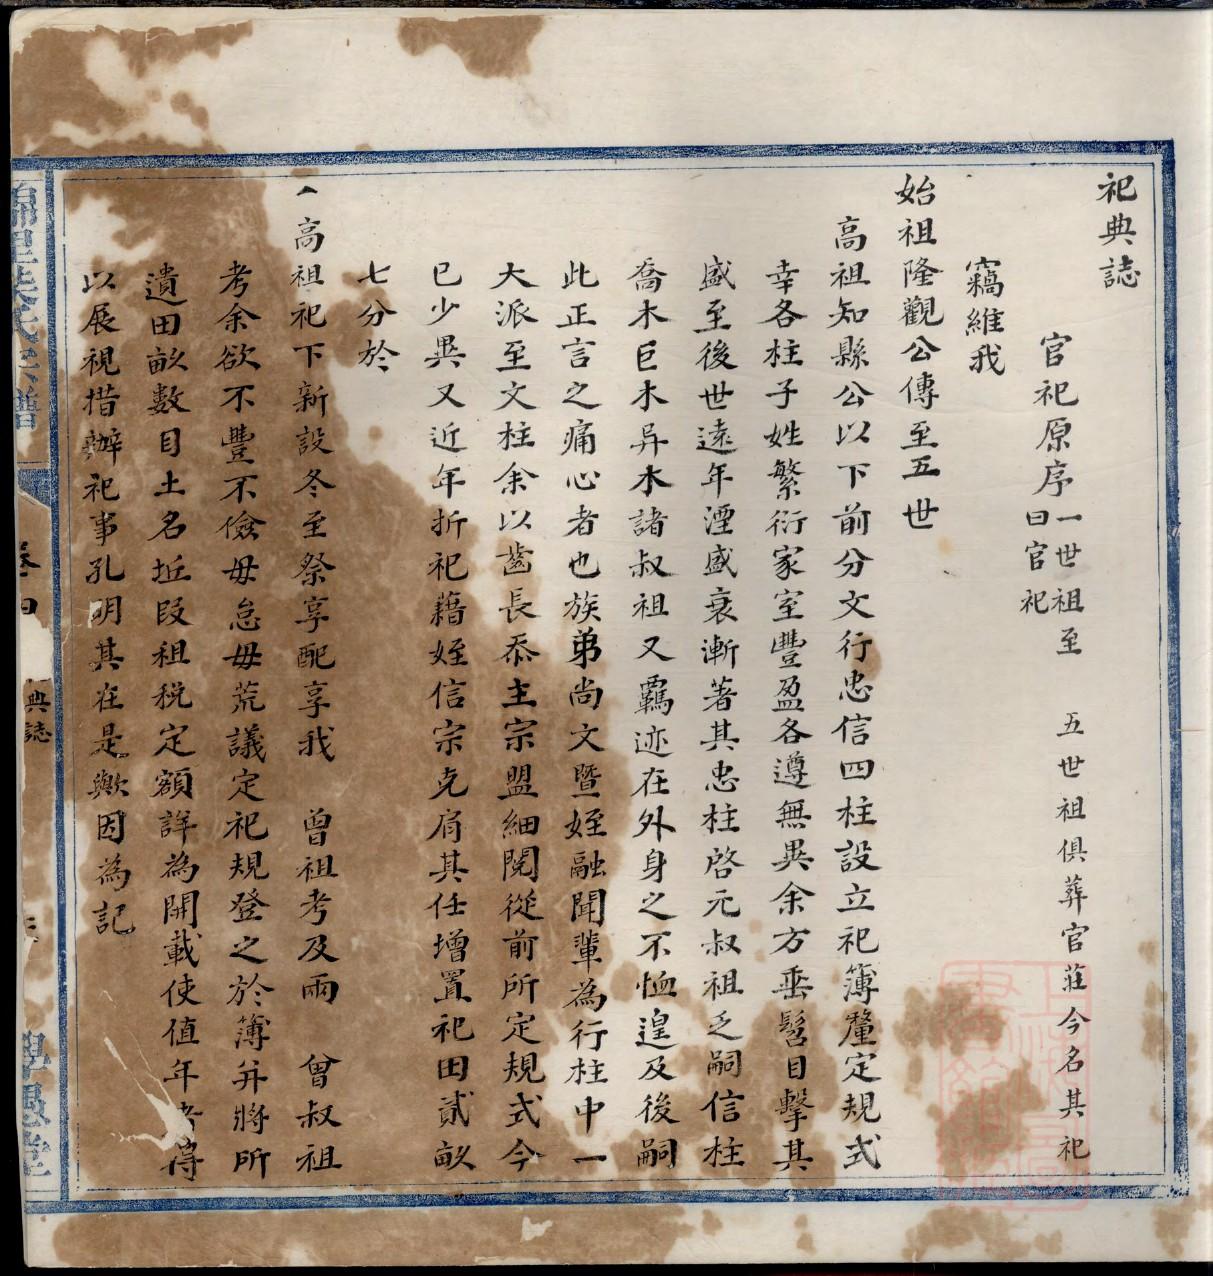 祀典誌
官祀原序一世祖至 五世祖俱葬官莊今名其祀
曰官祀
竊維我
始祖隆觀公傳至五世
高祖知縣公以下前分文行忠信四柱設立祀簿釐定規式
幸各柱子姓繁衍家室豐盈各遵無異余方垂髫目擊其
盛至後世遠年湮盛衰漸著其忠柱啓元叔祖乏嗣信柱
喬木巨木异木諸叔祖又羈迹在外身之不恤遑及後嗣
此正言之痛心者也族弟尚文暨姪融聞輩為行柱中一
大派至文柱余以齒長忝主宗盟細閱從前所定規式今
已少異又近年折祀藉姪信宗克肩其任增置祀田貳畝
七分於
高祖祀下新設冬至祭享配享我 曾祖考及兩 曾叔祖
考余欲不豐不儉毋怠毋荒議定祀規登之於簿并將所
遺田畝數目土名坵段租稅定額詳為開載使值年者得
以展視措辦祀事孔明其在是歟因為記
典誌